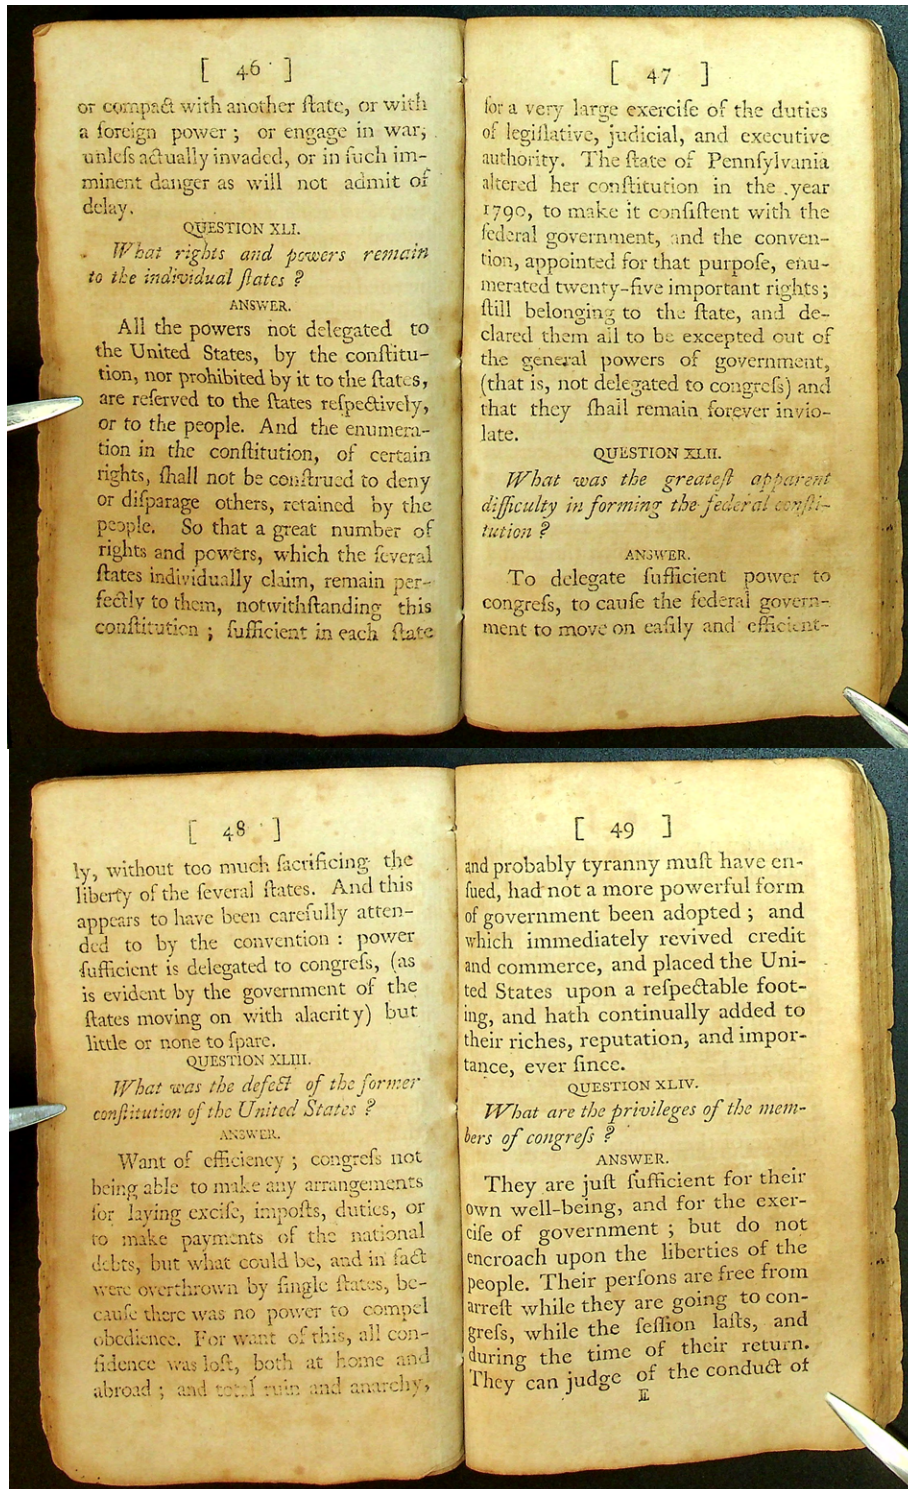 [ 46 ]
or compact with another ſtate, or with
a foreign power ; or engage in war,
unleſs actually invaded, or in ſuch im-
minent danger as will not admit of
delay.
QUESTION XLI.
What rights and powers remain
to the individual ſtates ?
ANSWER.
All the powers not delegated to
the United States, by the conſtitu-
tion, nor prohibited by it to the ſtates,
are reſerved to the ſtates reſpectively,
or to the people. And the enumera-
tion in the conſtitution, of certain
rights, ſhall not be conſtrued to deny
or diſparage others, retained by the
people. So that a great number of
rights and powers, which the ſeveral
ſtates individually claim, remain per-
fectly to them, notwithſtanding this
conſtitution ; ſufficient in each ſtate
[ 47 ]
for a very large exerciſe of the duties
of legiſlative, judicial, and executive
authority. The ſtate of Pennſylvania
altered her conſtitution in the year
1790, to make it conſiſtent with the
federal government, and the conven-
tion, appointed for that purpoſe, enu-
merated twenty-five important rights ;
ſtill belonging to the ſtate, and de-
clared them all to be excepted out of
the general powers of government,
(that is, not delegated to congreſs) and
that they ſhall remain forever invio-
late.
QUESTION XLII.
What was the greateſt apparent
difficulty in forming the federal conſti-
tution ?
ANSWER.
To delegate ſufficient power to
congreſs, to cauſe the federal govern-
ment to move on eaſily and efficient-
[ 48 ]
ly, without too much ſacrificing the
liberty of the ſeveral ſtates. And this
appears to have been carefully atten-
ded to by the convention : power
ſufficient is delegated to congreſs, (as
is evident by the government of the
ſtates moving on with alacrity) but
little or none to ſpare.
QUESTION XLIII.
What was the defect of the former
conſtitution of the United States ?
ANSWER.
Want of efficiency ; congreſs not
being able to make any arrangements
for laying exciſe, impoſts, duties, or
to make payments of the national
debts, but what could be, and in fact
were overthrown by ſingle ſtates, be-
cauſe there was no power to compel
obedience. For want of this, all con-
fidence was loſt, both at home and
abroad ; and total ruin and anarchy,
[ 49 ]
and probably tyranny muſt have en-
ſued, had not a more powerful form
of government been adopted ; and
which immediately revived credit
and commerce, and placed the Uni-
ted States upon a reſpectable foot-
ing, and hath continually added to
their riches, reputation, and impor-
tance, ever ſince.
QUESTION XLIV.
What are the privileges of the mem-
bers of congreſs ?
ANSWER.
They are juſt ſufficient for their
own well-being, and for the exer-
ciſe of government ; but do not
encroach upon the liberties of the
people. Their perſons are free from
arreſt while they are going to con-
greſs, while the ſeſſion laſts, and
during the time of their return.
They can judge of the conduct of
E